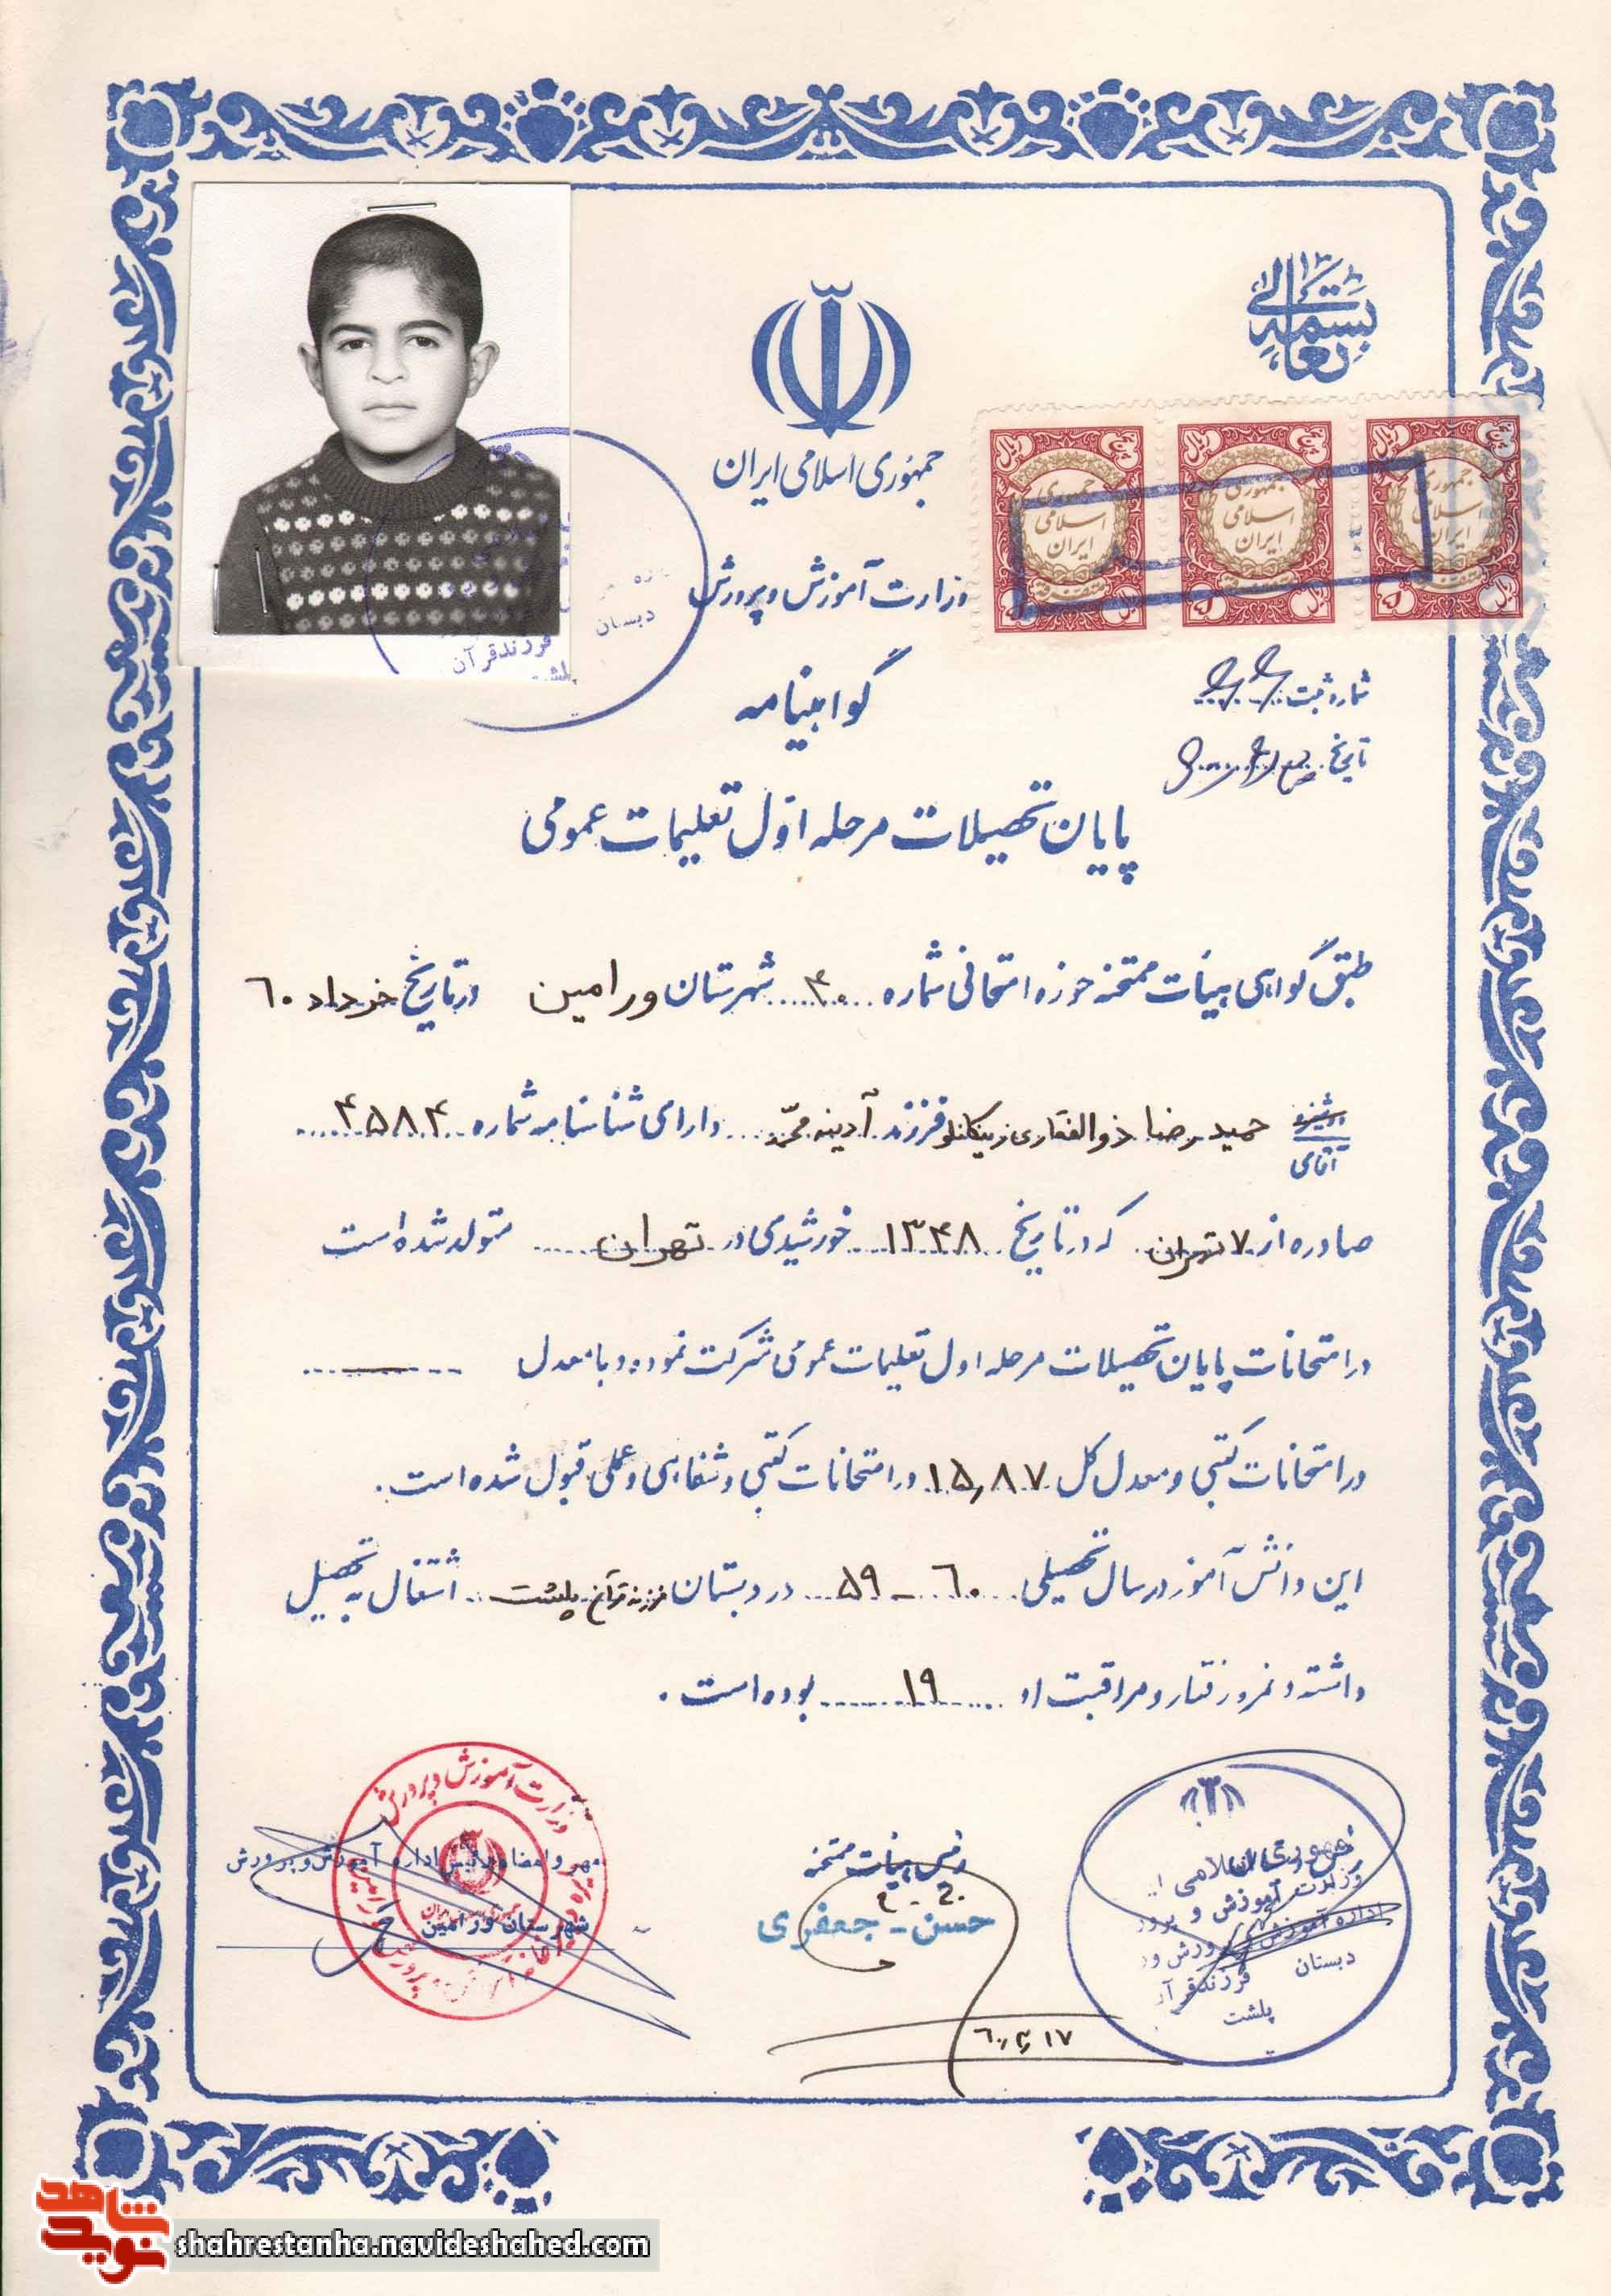 بسمه تعالی
جمهوری اسلامی ایران
وزارت آموزش و پرورش
جمهوری اسلامی ایران
جمهوری اسلامی ایران
جمهوری اسلامی ایران
دبستان
فرزند قرآن
شماره ثبت
تاریخ
گواهینامه
پایان تحصیلات مرحله اول تعلیمات عمومی
طبق گواهی هیئات ممتحنه حوزه امتحانی شماره ۴۰ شهرستان ورامین در تاریخ خرداد ۶۰
دوشیزه
آقای
حمید رضا ذوالفقاری زیکانلو فرزند آدینه محمد دارای شناسنامه شماره ۴۵۸۴
صادره از ۷ تهران که در تاریخ ۱۳۴۸ خورشیدی در تهران متولد شده است
در امتحانات پایان تحصیلات مرحله اول تعلیمات عمومی شرکت نموده و با معدل
در امتحانات کتبی و معدل کل ۱۵٫۸۷ در امتحانات کتبی و شفاهی و عملی قبول شده است.
این دانش آموز در سال تحصیلی ۶۰-۵۹ در دبستان فرزند قرآن پلشت اشتغال به تحصیل
داشته و نمره رفتار و مراقبت او ۱۹ بوده است.
رئیس هیئات ممتحنه
حسن - جعفری
مهر و امضاء رئیس اداره آموزش و پرورش
شهرستان ورامین
وزارت آموزش و پرورش
جمهوری اسلامی
وزارت آموزش و پرورش
اداره آموزش و پرورش
دبستان فرزند قرآن
پلشت
۶۰٫۴٫۱۷
نوید شاهد
shahrestanha.navideshahed.com